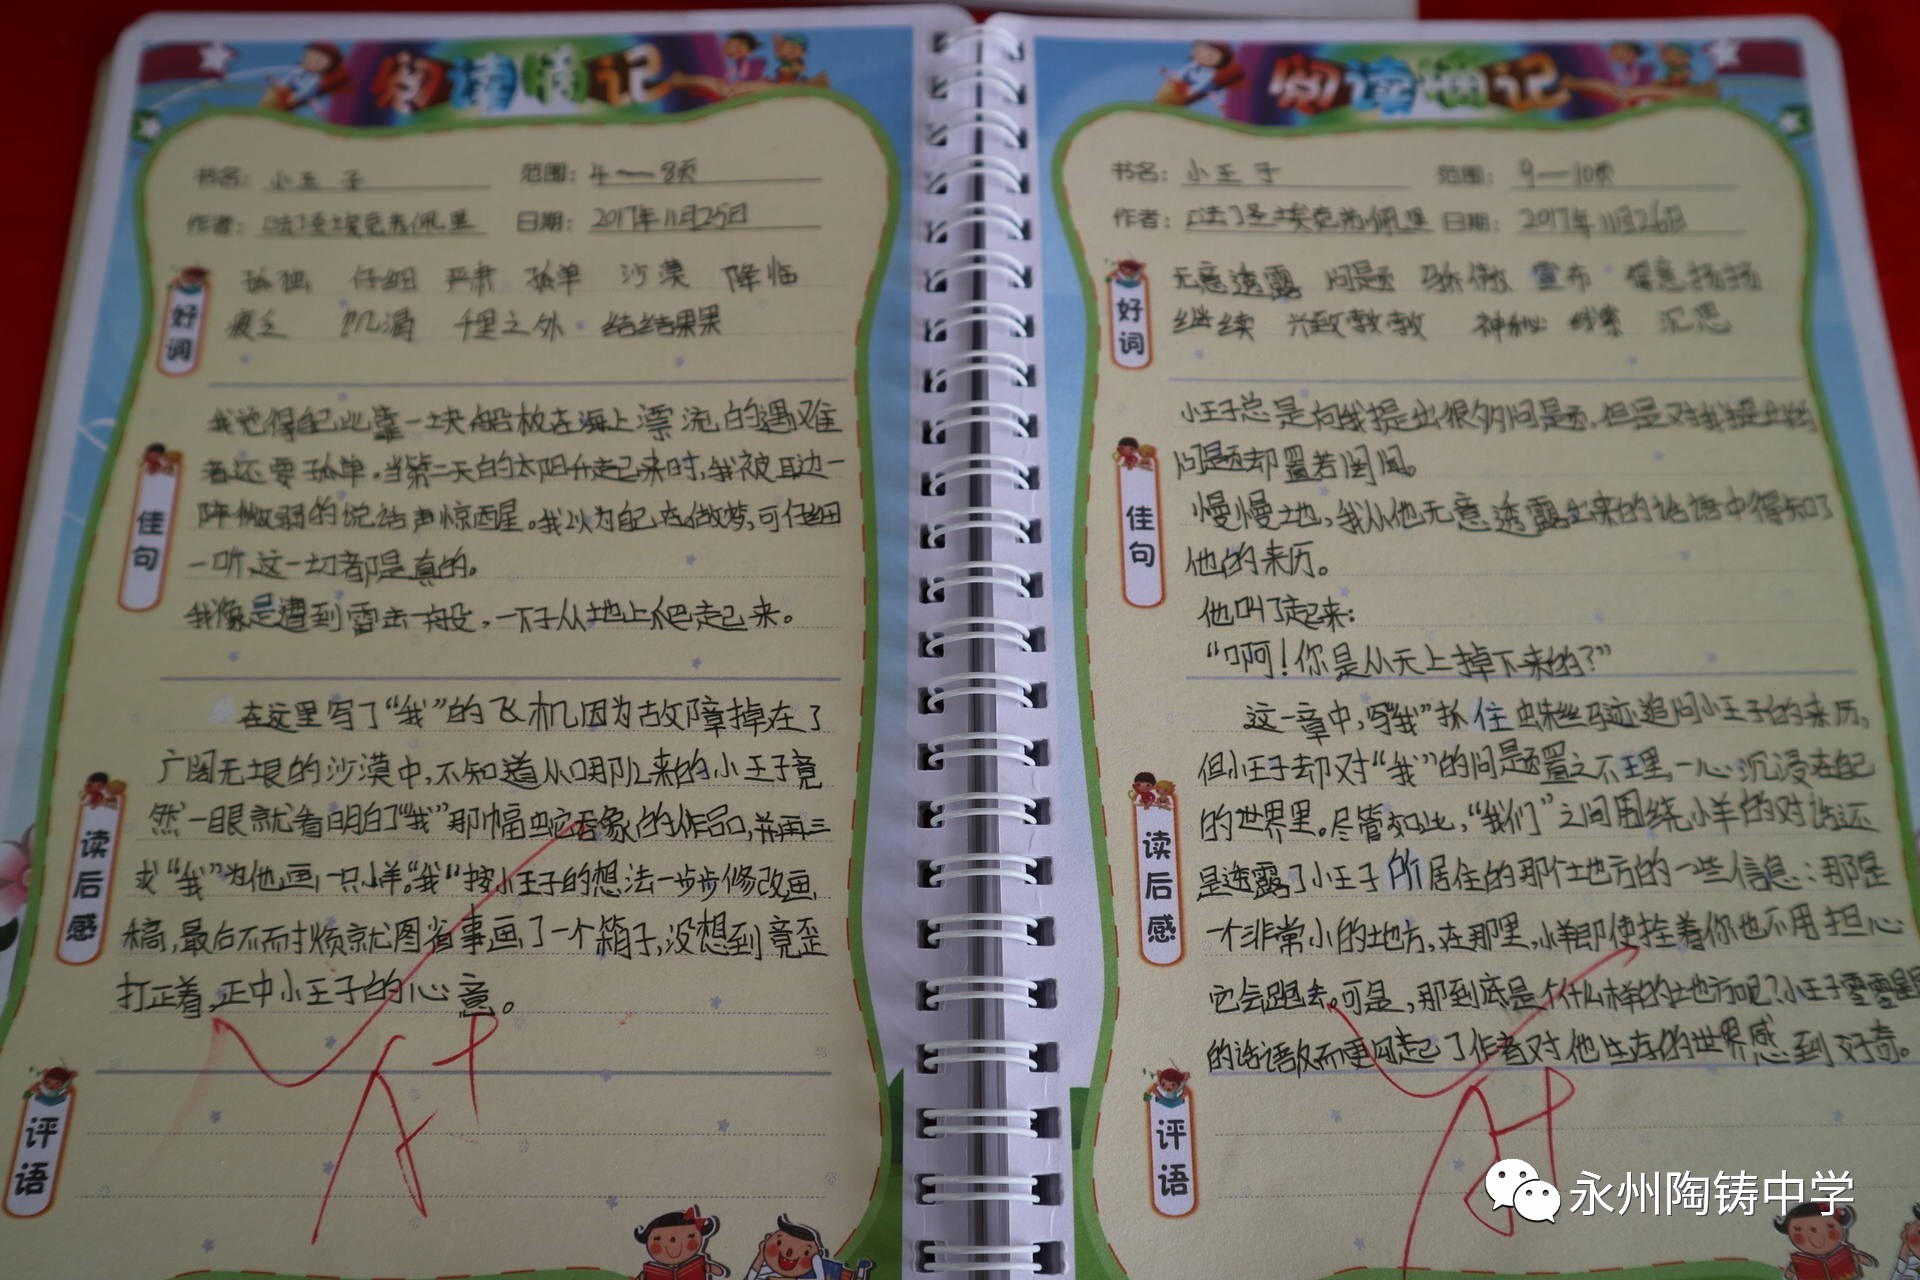 阅读摘记
书名： 小王子 范围： 4—8页
作者： [法]圣埃克苏佩里 日期： 2017年11月25日
好词
孤独 仔细 严肃 孤单 沙漠 降临
疲乏 饥渴 千里之外 结结果果
佳句
我觉得自己比靠一块船板在海上漂流的遇难
者还要孤单。当第二天白的太阳升起来时，我被耳边一
阵微弱的说话声惊西星。我以为自己在做梦，可仔细
一听，这一切都是真的。
我像是遭到雷击一般，一下子从地上爬起来。
读后感
在这里写了“我”的飞机因为故障掉在了
广阔无垠的沙漠中，不知道从哪儿来的小王子竟
然一眼就看明白了“我”那幅蛇吞象的作品，并再三
求“我”为他画一只小羊。“我”按小王子的想法一步步修改画
稿，最后不耐烦就图省事画了一个箱子，没想到竟歪
打正着，正中小王子的心意。
A+
评语
阅读摘记
书名： 小王子 范围： 9—10页
作者： [法]圣埃克苏佩里 日期： 2017年11月26日
好词
无意透露 问题 骄傲 宣布 慢悠扬扬
继续 兴致勃勃 神秘 线索 沉思
佳句
小王子总是向我提出很多问题，但是对我提出的
问题却置若罔闻。
慢慢地，我从他无意透露出来的话语中得知了
他的来历。
他叫了起来：
“啊！你是从天上掉下来的？”
读后感
这一章中，写“我”抓住蛛丝马迹追问小王子的来历，
但小王子却对“我”的问题置之不理，一心沉浸在自己
的世界里。尽管如此，“我们”之间围绕小羊的对话还
是透露了小王子所居住的那个地方的一些信息：那是
一个非常小的地方，在那里，小羊即使拴着你也不用担心
它会跑丢。可是，那到底是个什么样的地方呢？小王子零零星星
的话语反而更勾起了作者对他生存的世界感到好奇。
A+
评语
永州陶铸中学